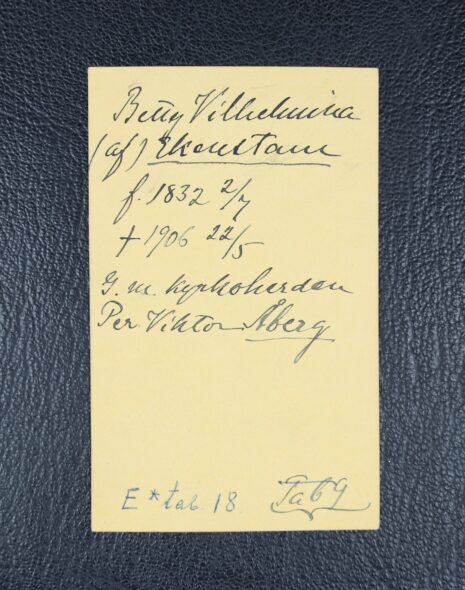 Betty Vilhelmina
(af) Ekenstam
f. 1832 2/7
† 1906 22/5
G. m. kyrkoherden
Per Viktor Åberg
E * tab. 18 Tab 9